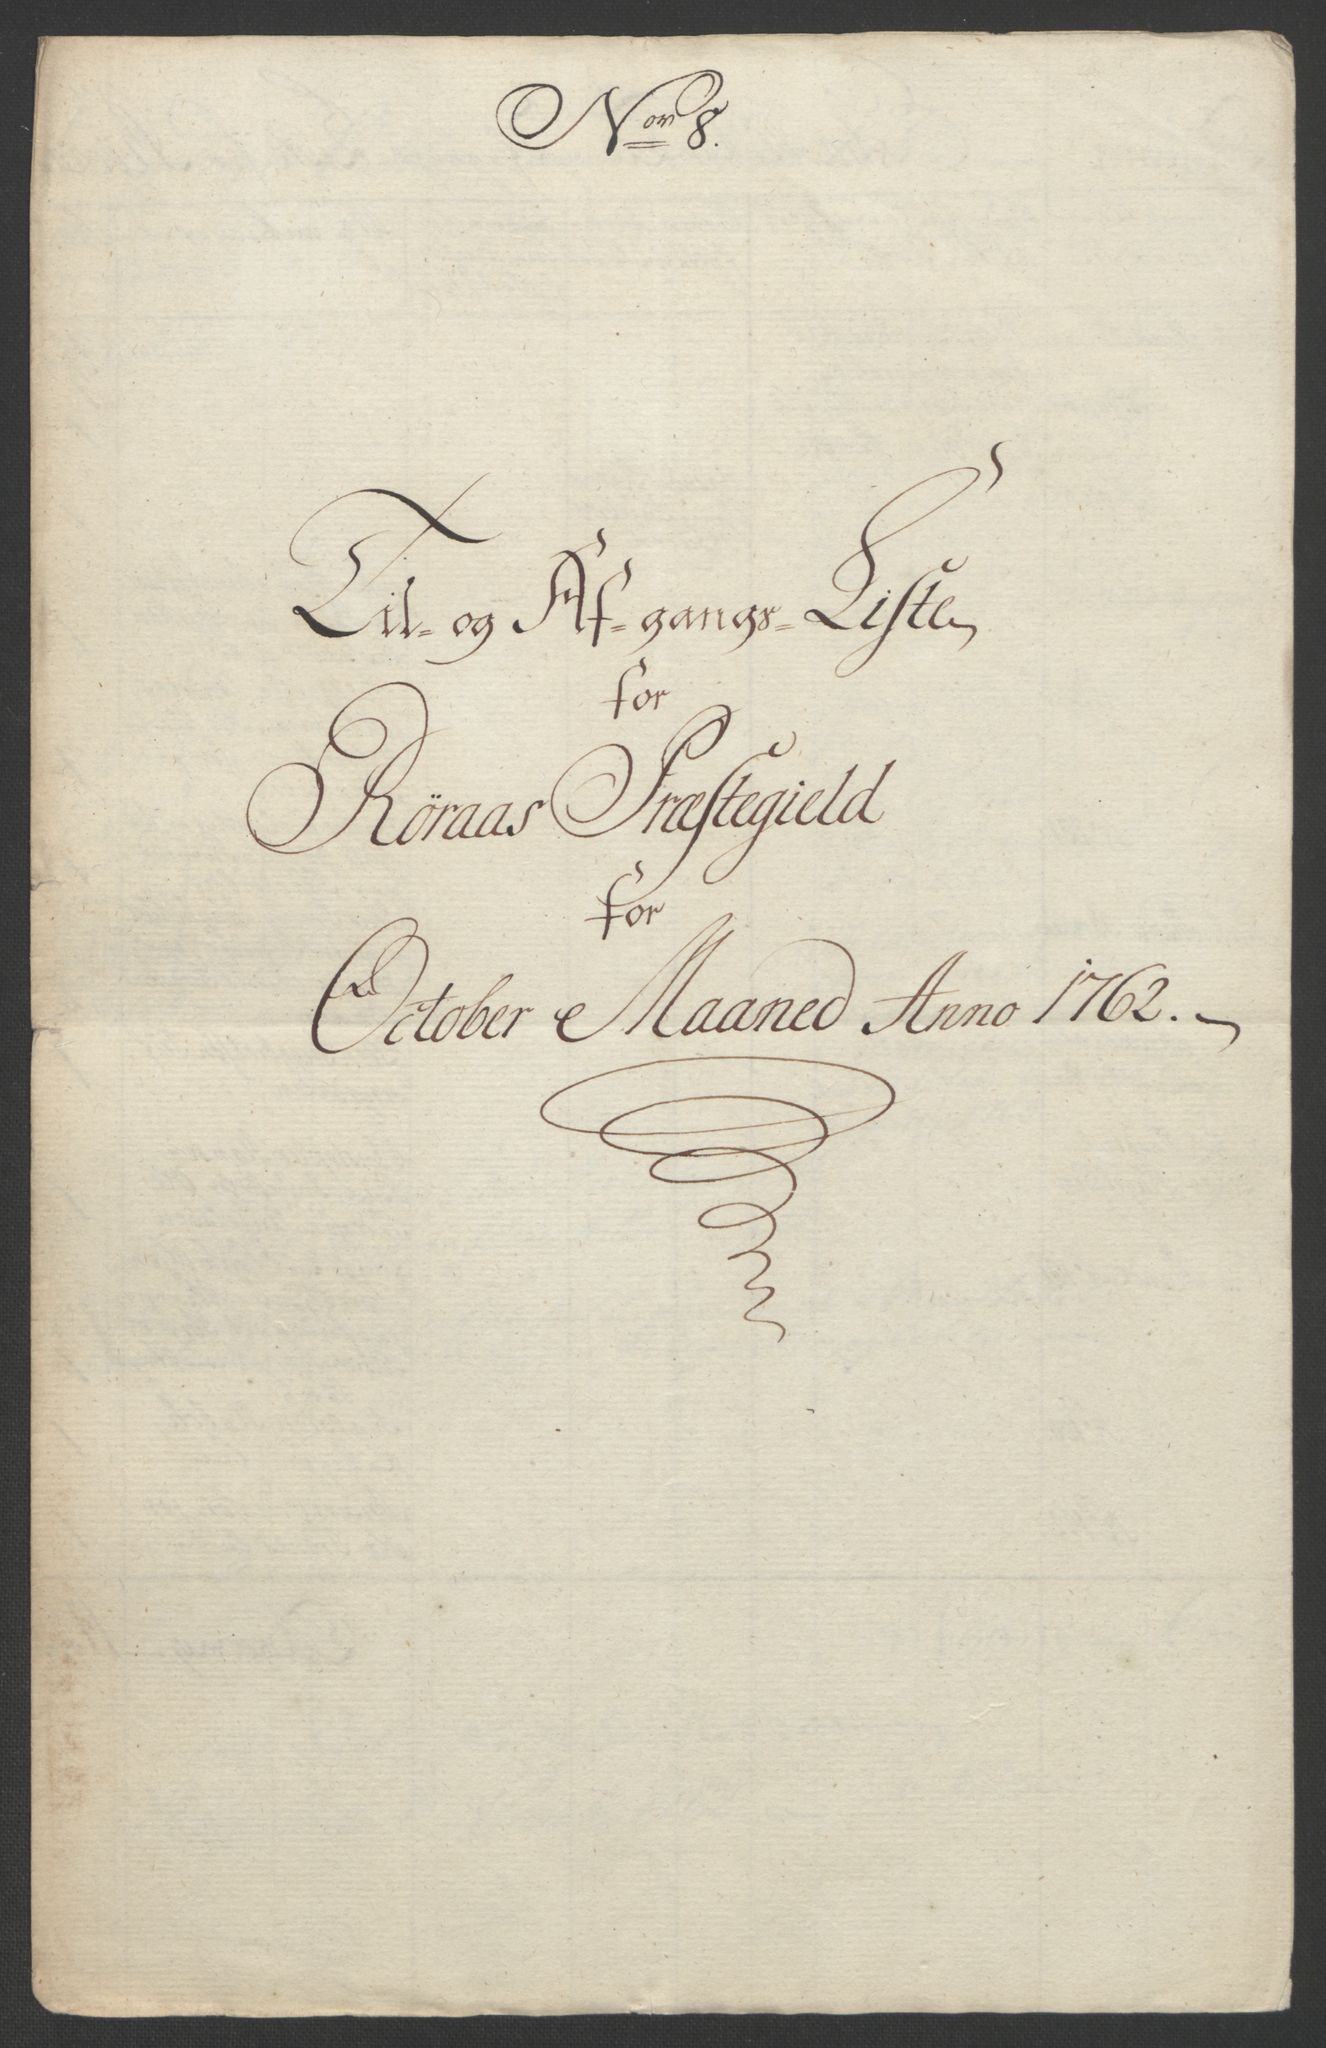 No 8.
Til- og Af-gangs-Liste
for
Röraas Præstegield
for
October Maaned Anno 1762.